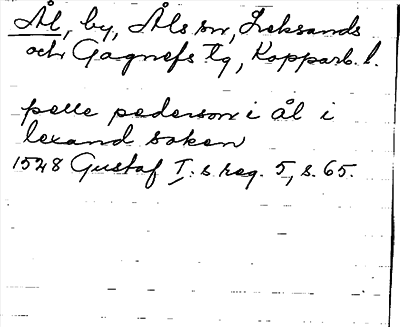 Ål, by, Åls sn, Leksands
och Gagnefs tg, Kopparb. l.
pelle pedersson i ål i
lexand soken
1528 Gustaf I:s reg. 5, s. 65.